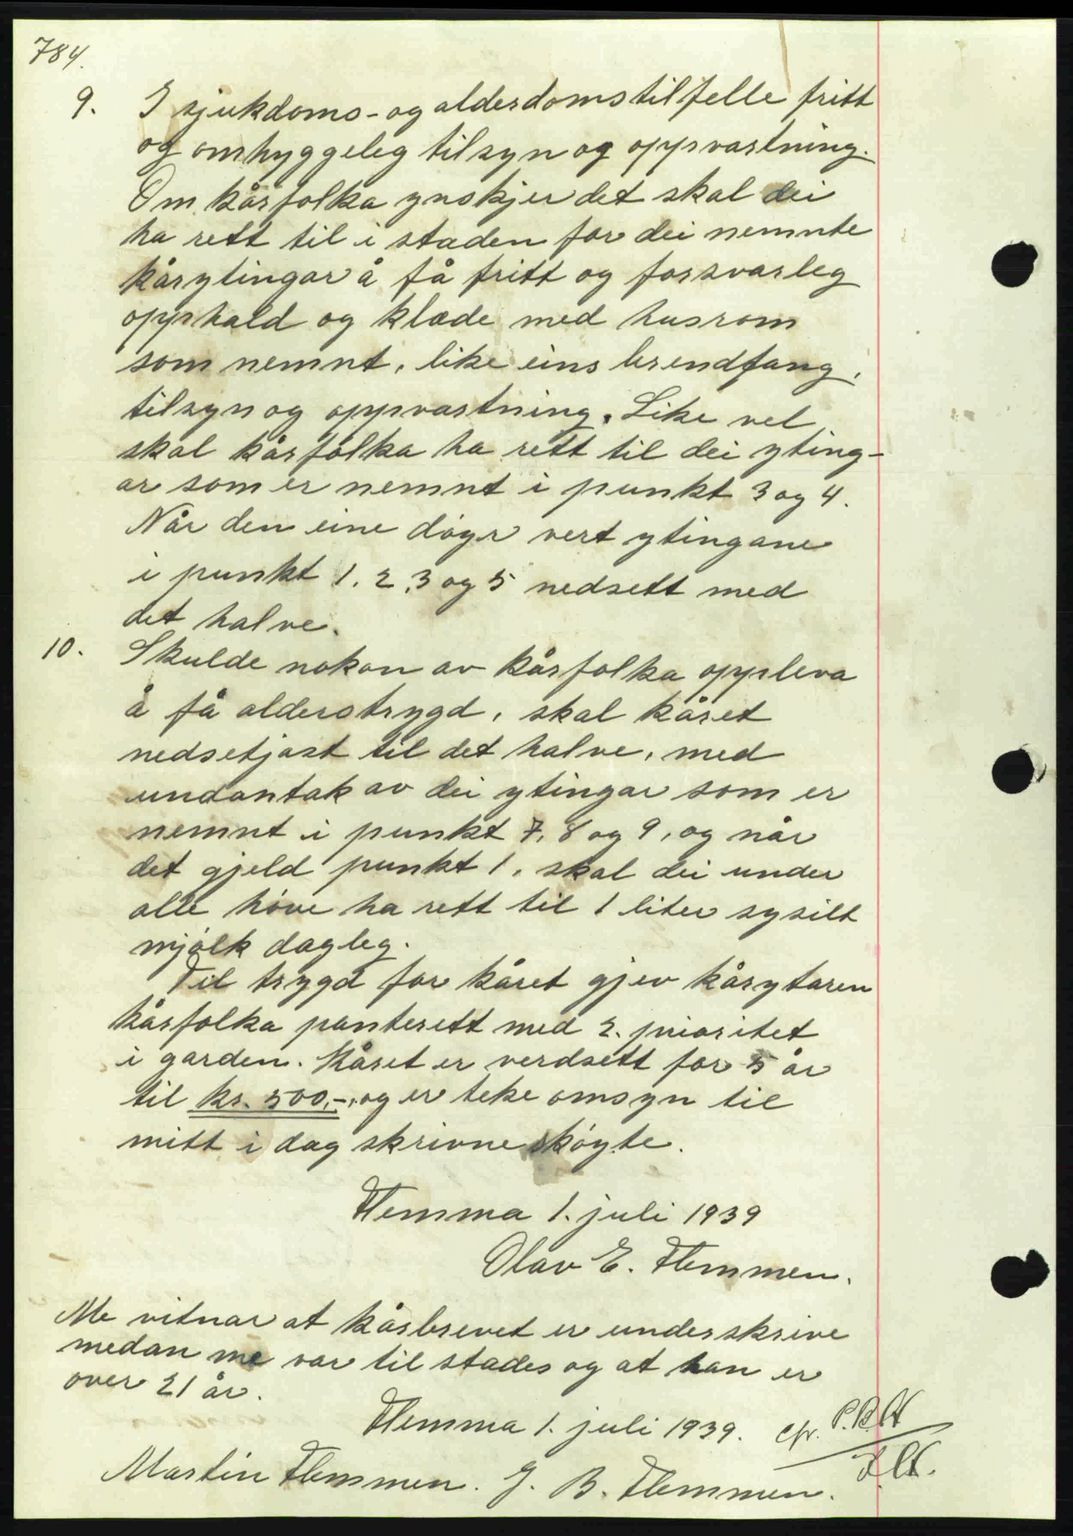 784.
9. I sjukdoms- og alderdomstilfelle fritt
og omhyggeleg tilsyn og oppvartning.
Om kårfolka ynskjer det skal dei
ha rett til i staden for dei nemnte
kårytingar å få fritt og forsvarleg
opphald og klæde med husrom
som nemnt, like eins brendfang,
tilsyn og oppvartning. Like vel
skal kårfolka ha rett til dei yting-
ar som er nemnt i punkt 3 og 4.
Når den eine døyr vert ytingane
i punkt 1, 2, 3 og 5 nedsett med
det halve.
10. Skulde nokon av kårfolka oppleva
å få alderstrygd, skal kåret
nedsetjast til det halve, med
undantak av dei ytingar som er
nemnt i punkt 7, 8 og 9, og når
det gjeld punkt 1, skal dei under
alle høve ha rett til 1 liter nysilt
mjølk dagleg.
Til trygd for kåret gjev kårytaren
kårfolka panterett med 2. prioritet
i garden. Kåret er verdsett for 5 år
til kr. 500,-, og er teke omsyn til
mitt i dag skrivne skøyte.
Flemma 1. juli 1939
Olav E. Flemmen.
Me vitnar at kårbrevet er underskrive
medan me var til stades og at han er
over 21 år.
Flemma 1. juli 1939.
Martin Flemmen. J. B. Flemmen.